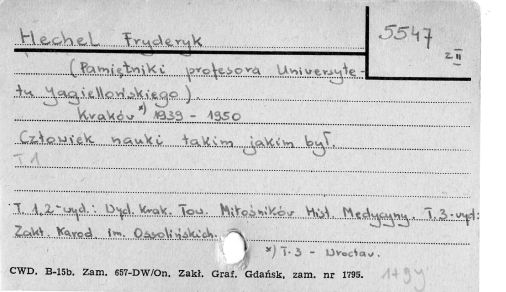 Hechel Fryderyk
5547
z II
(Pamiętniki profesora Uniwersyte-
tu Jagiellońskiego).
Kraków *) 1939 - 1950
Człowiek nauki takim jakim był.
T 1
T. 1,2-wyd.: Wyd. Krak. Tow. Miłośników Hist. Medycyny. T.3-wyd:
Zakł. Narod im. Ossolińskich.
*) T.3 - Wrocław.
CWD. B-15b. Zam. 657-DW/On. Zakł. Graf. Gdańsk, zam. nr 1795.